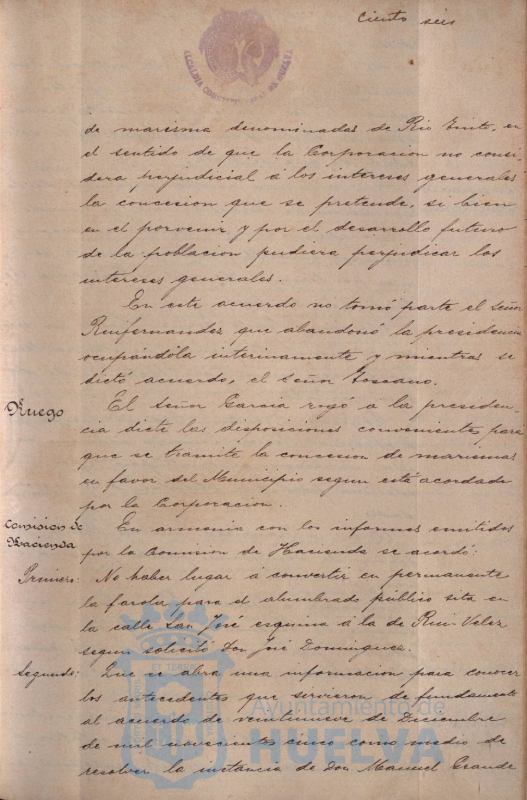 ciento seis
ALCALDIA CONSTITUCIONAL DE HUELVA
de marisma denominadas de Rio Tinto, en
el sentido de que la Corporacion no consi
dera perjudicial á los intereses generales
la concesion que se pretende, si bien
en el porvenir y por el desarrollo futuro
de la poblacion pudiera perjudicar los
intereses generales.
En este acuerdo no tomó parte el señor
Ruifernandez que abandonó la presidencia
ocupándola interinamente y mientras se
dictó acuerdo, el Señor Toscano.
Ruego
El Señor Garcia rogó á la presiden-
cia dicte las disposiciones conveniente para
que se tramite la concesion de marismas
en favor del Municipio segun está acordado
por la Corporacion.
Comision de
Hacienda
En armonia con los informes emitidos
por la Comision de Hacienda se acordó:
Primero: No haber lugar á convertir en permanente
la farola para el alumbrado público sita en
la calle San José esquina á la de Rui-Velez
segun solicitó Don José Dominguez.
Segundo: Que se abra una informacion para conocer
los antecedentes que sirvieron de fundamento
al acuerdo de veintinueve de Diciembre
de mil novecientos cinco como medio de
resolver la instancia de Don Manuel Grande
ET TERRAE
Ayuntamiento de
HUELVA